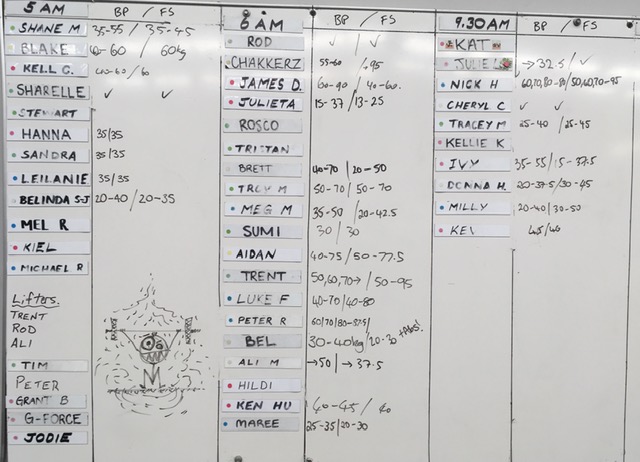 5 AM BP / FS
SHANE M 35-55 / 35-45
BLAKE 40-60 / 60kg
KELL G. 40-60 / 60
SHARELLE ✓ ✓
STEWART
HANNA 35/35
SANDRA 35/35
LEILANIE 35/35
BELINDA SJ 20-40 / 20-35
MEL R
KIEL
MICHAEL R
Lifters.
TRENT
ROD
ALI
TIM
PETER
GRANT B
G-FORCE
JODIE
6 AM BP / FS
ROD ✓ / ✓
CHAKKERZ 55-60 / 95
JAMES D. 60-90 / 40-60.
JULIETA 15-37 / 13-25
ROSCO
TRISTAN
BRETT 40-70 / 20-50
TROY M 50-70 / 50-70
MEG M 35-50 / 20-42.5
SUMI 30 / 30
AIDAN 40-75 / 50-77.5
TRENT 50,60,70→ / 50-95
LUKE F 40-70/40-80
PETER R 60/70/80-37.5/
BEL 30-40kg/20-30 +Abs!
ALI M →50 | → 37.5
HILDI
KEN HU 40-45 / 40
MAREE 25-35/20-30
9.30AM BP / FS
KAT
JULIE → 32.5 / ✓
NICK H 60,70,80-80/50,60,70-95
CHERYL C ✓ ✓
TRACEY M 25-40 / 25-45
KELLIE K
IVY 35-55/15-37.5
DONNA H. 20-37.5/30-45
MILLY 20-40/30-50
KEV 45/40